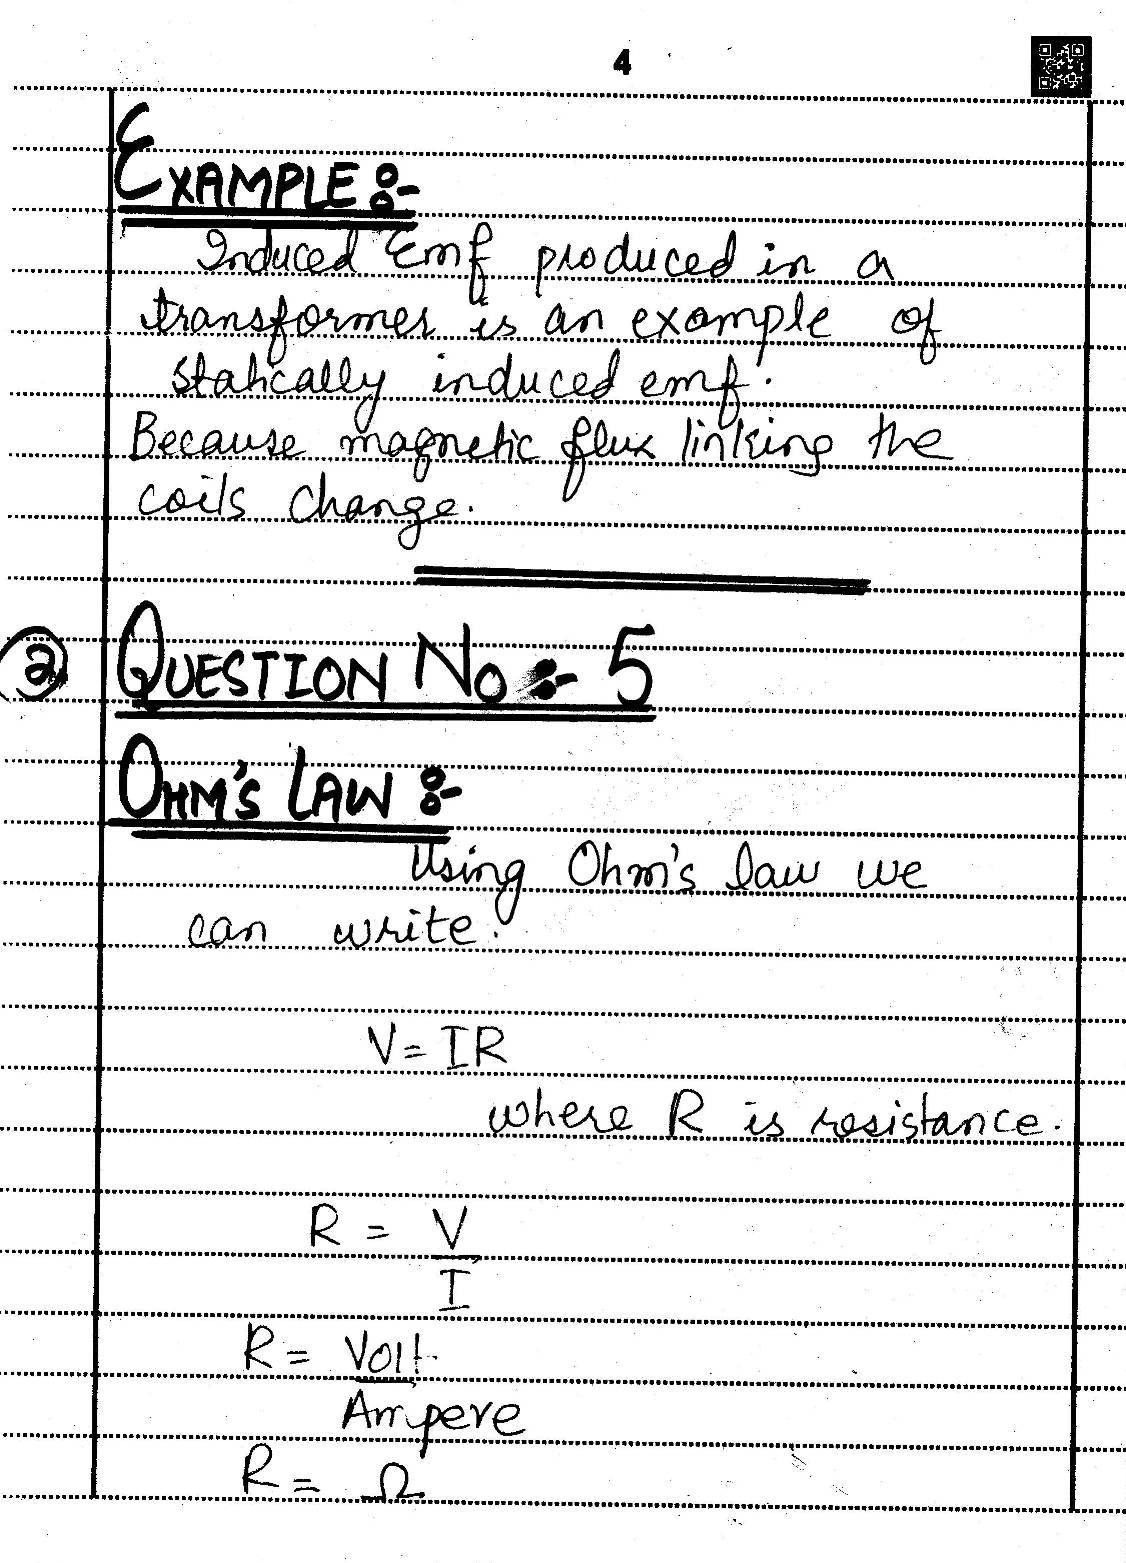 4
EXAMPLE:-
Induced Emf produced in a
transformer is an example of
statically induced emf.
Because magnetic flux linking the
coils change.
2 QUESTION No:- 5
OHM'S LAW :-
Using Ohm's law we
can write.
V = IR
where R is resistance.
R = V
I
R = Volt
Ampere
R = Ω